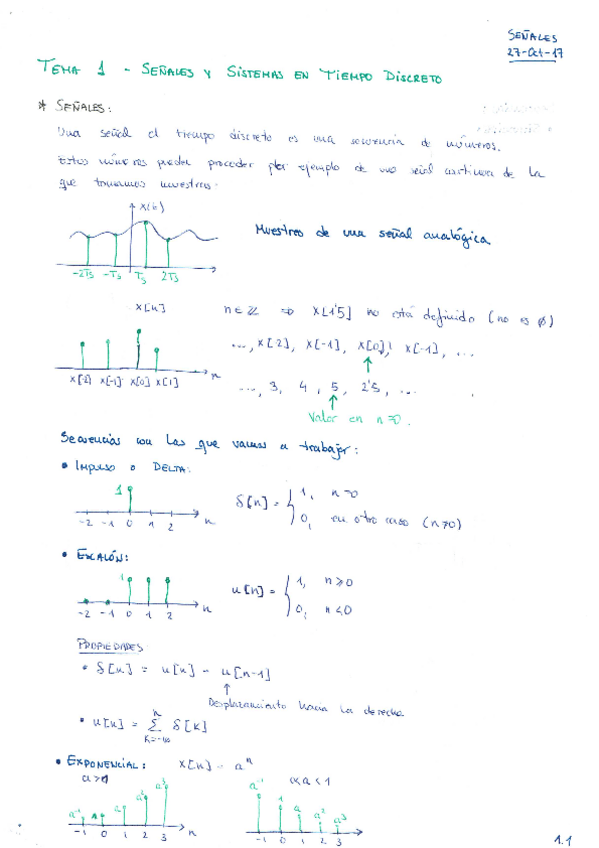 SEÑALES
27-Oct-17
TEMA 1 - SEÑALES Y SISTEMAS EN TIEMPO DISCRETO
* SEÑALES:
Una señal el tiempo discreto es una secuencia de números.
Estos números pueden proceder por ejemplo de una señal continua de la
que tomamos muestras.
x(t)
-2Ts -Ts Ts 2Ts
Muestras de una señal analógica
x[n]
x[-2] x[-1] x[0] x[1] n
n∈ℤ ⇒ x[1'5] no está definido (no es ∅)
..., x[2], x[-1], x[0], x[-1], ...
..., 3, 4, 5, 2'5, ...
Valor en n=0.
Secuencias con las que vamos a trabajar:
• IMPULSO O DELTA:
1
-2 -1 0 1 2 n
δ[n] = { 1, n=0
0, en otro caso (n≠0)
• ESCALÓN:
1
-2 -1 0 1 2 n
u[n] = { 1, n≥0
0, n<0
PROPIEDADES
• δ[n] = u[n] - u[n-1]
Desplazamiento hacia la derecha
• u[n] = Σ δ[k]
n
k=-∞
• EXPONENCIAL: x[n] = aⁿ
0<a<1
a⁻¹ 1 a a² a³
-1 0 1 2 3 n
a⁻¹ 1 a a² a³
-1 0 1 2 3
1.1